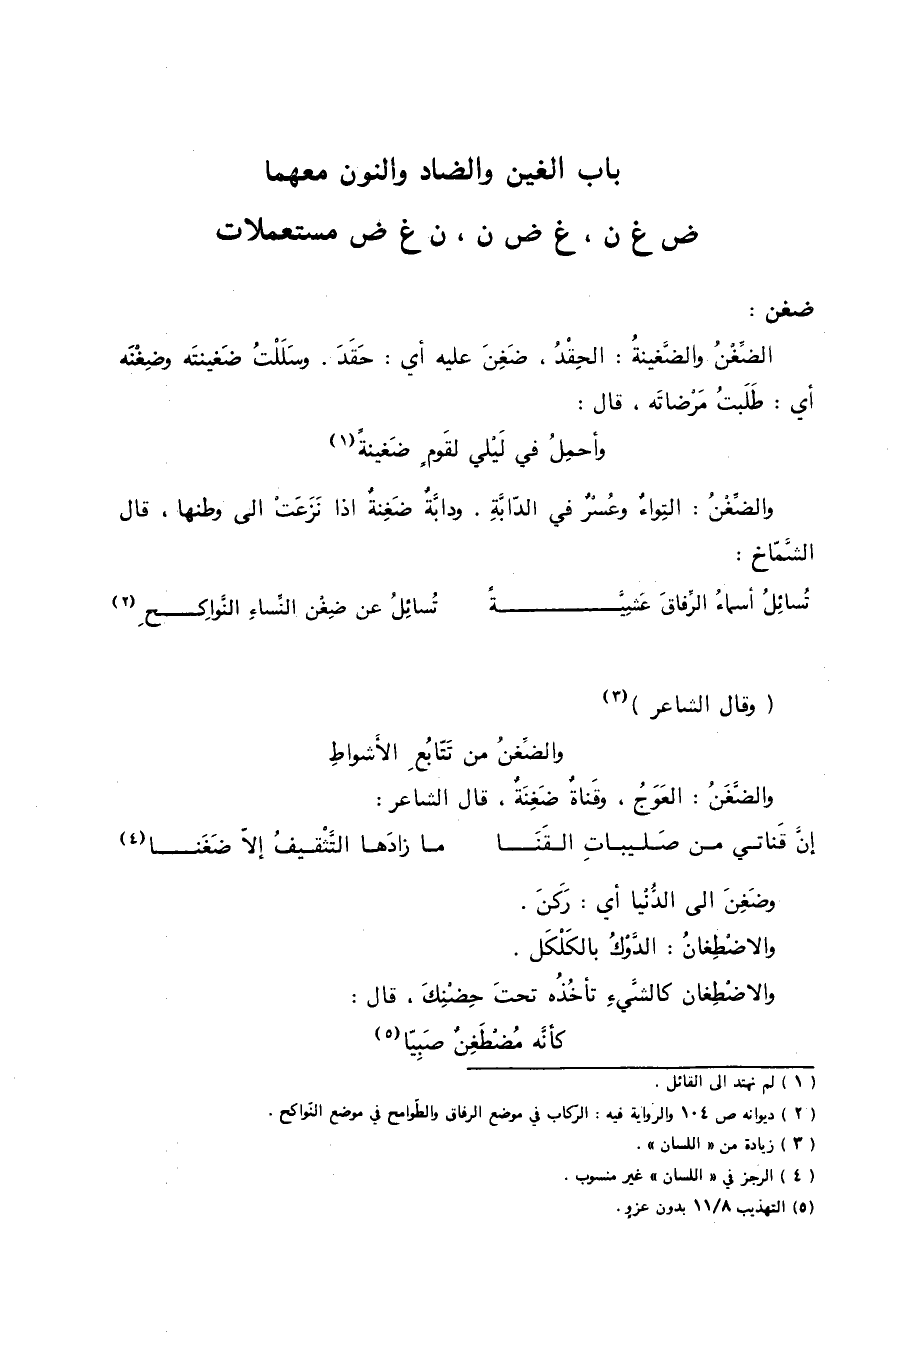 باب الغين والضاد والنون معهما
ض غ ن ، غ ض ن ، ن غ ض مستعملات
ضغن :
الضِّغْنُ والضَّغينةُ : الحِقْدُ ، ضَغِنَ عليه أي : حَقَدَ . وسَلَلْتُ ضَغينتَه وضِغْنَه
أي : طَلَبتُ مَرْضاتَه ، قال :
وأحمِلُ في لَيْلي لقَومٍ ضَغينةً(١)
والضِّغْنُ : التِواءٌ وعُسْرٌ في الدّابَّةِ . ودابَّةٌ ضَغِنةٌ اذا نَزَعَتْ الى وطنها ، قال
الشَّمّاخ :
تُسائِلُ أسماءُ الرِّفاقَ عَشِيَّــــــــــــــةً تُسائِلُ عن ضِغْنِ النِّساءِ النَّواكِـــــحِ(٢)
( وقال الشاعر )(٣)
والضِّغنُ من تَتَابُعِ الأَشواطِ
والضَّغَنُ : العَوَجُ ، وقَناةٌ ضَغِنَةٌ ، قال الشاعر :
إنَّ قَناتـي مـن صَلـيبـاتِ الـقَنَـــا مـا زادَهـا التَّثْقـيفُ إلاّ ضَغَنــــا(٤)
وضَغِنَ الى الدُّنْيا أي : رَكَنَ .
والاضْطِغانُ : الدَّوْكُ بالكَلْكَل .
والاضْطِغان كالشَّيءِ تأخُذُه تحتَ حِضْنِكَ ، قال :
كأنَّه مُضْطَغِنٌ صَبِيّا(٥)
( ١ ) لم نهتد الى القائل .
( ٢ ) ديوانه ص ١٠٤ والرواية فيه : الركاب في موضع الرفاق والطَوامح في موضع النَواكح .
( ٣ ) زيادة من « اللسان » .
( ٤ ) الرجز في « اللسان » غير منسوب .
(٥) التهذيب ١١/٨ بدون عزوٍ .